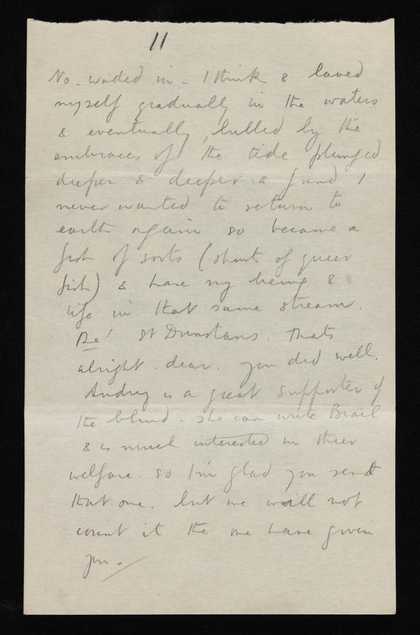 11
No. waded in - I think & laved
myself gradually in the waters
& eventually, lulled by the
embraces of the tide plunged
deeper & deeper & found I
never wanted to return to
earth again so became a
fish of sorts (short of queer
fish) & have my being &
life in that same stream.
Re! St Dunstans. Thats
alright dear. you did well.
Audrey is a great supporter of
the blind. she can write Brail
& is much interested in their
welfare. so I'm glad you send
that one. but we will not
count it the one have given
you.